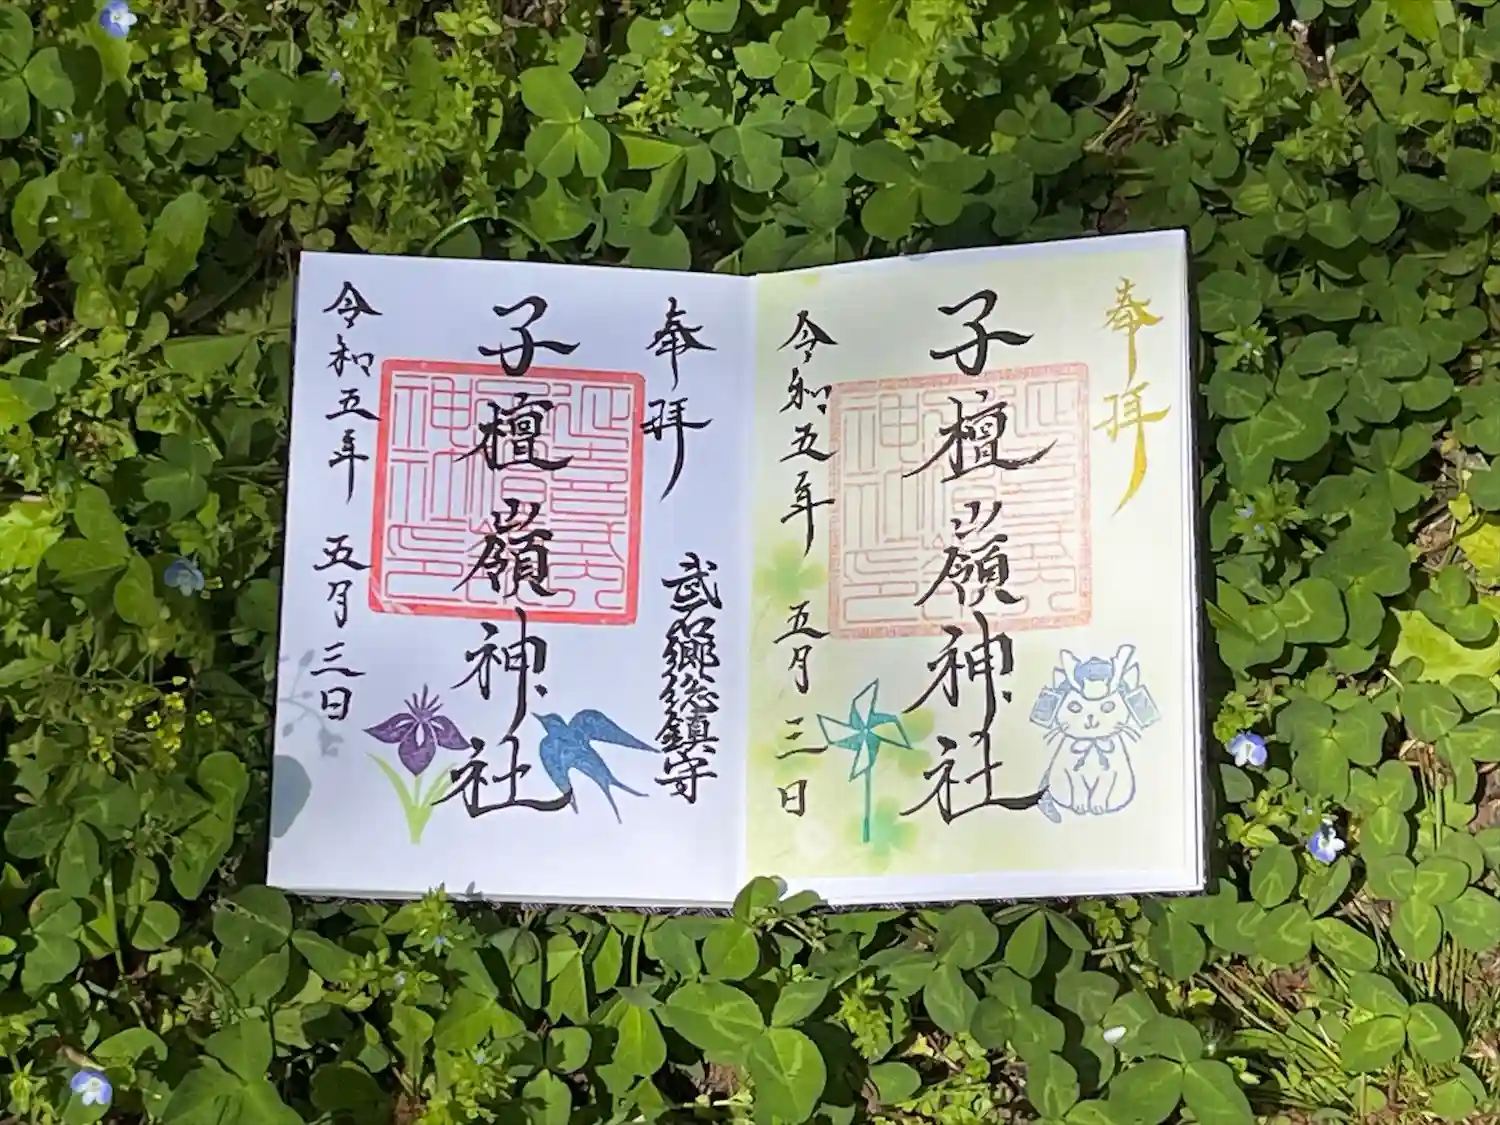 奉拝
子檀嶺神社
令和五年 五月三日
奉拝
武石郷総鎮守
子檀嶺神社
令和五年 五月三日